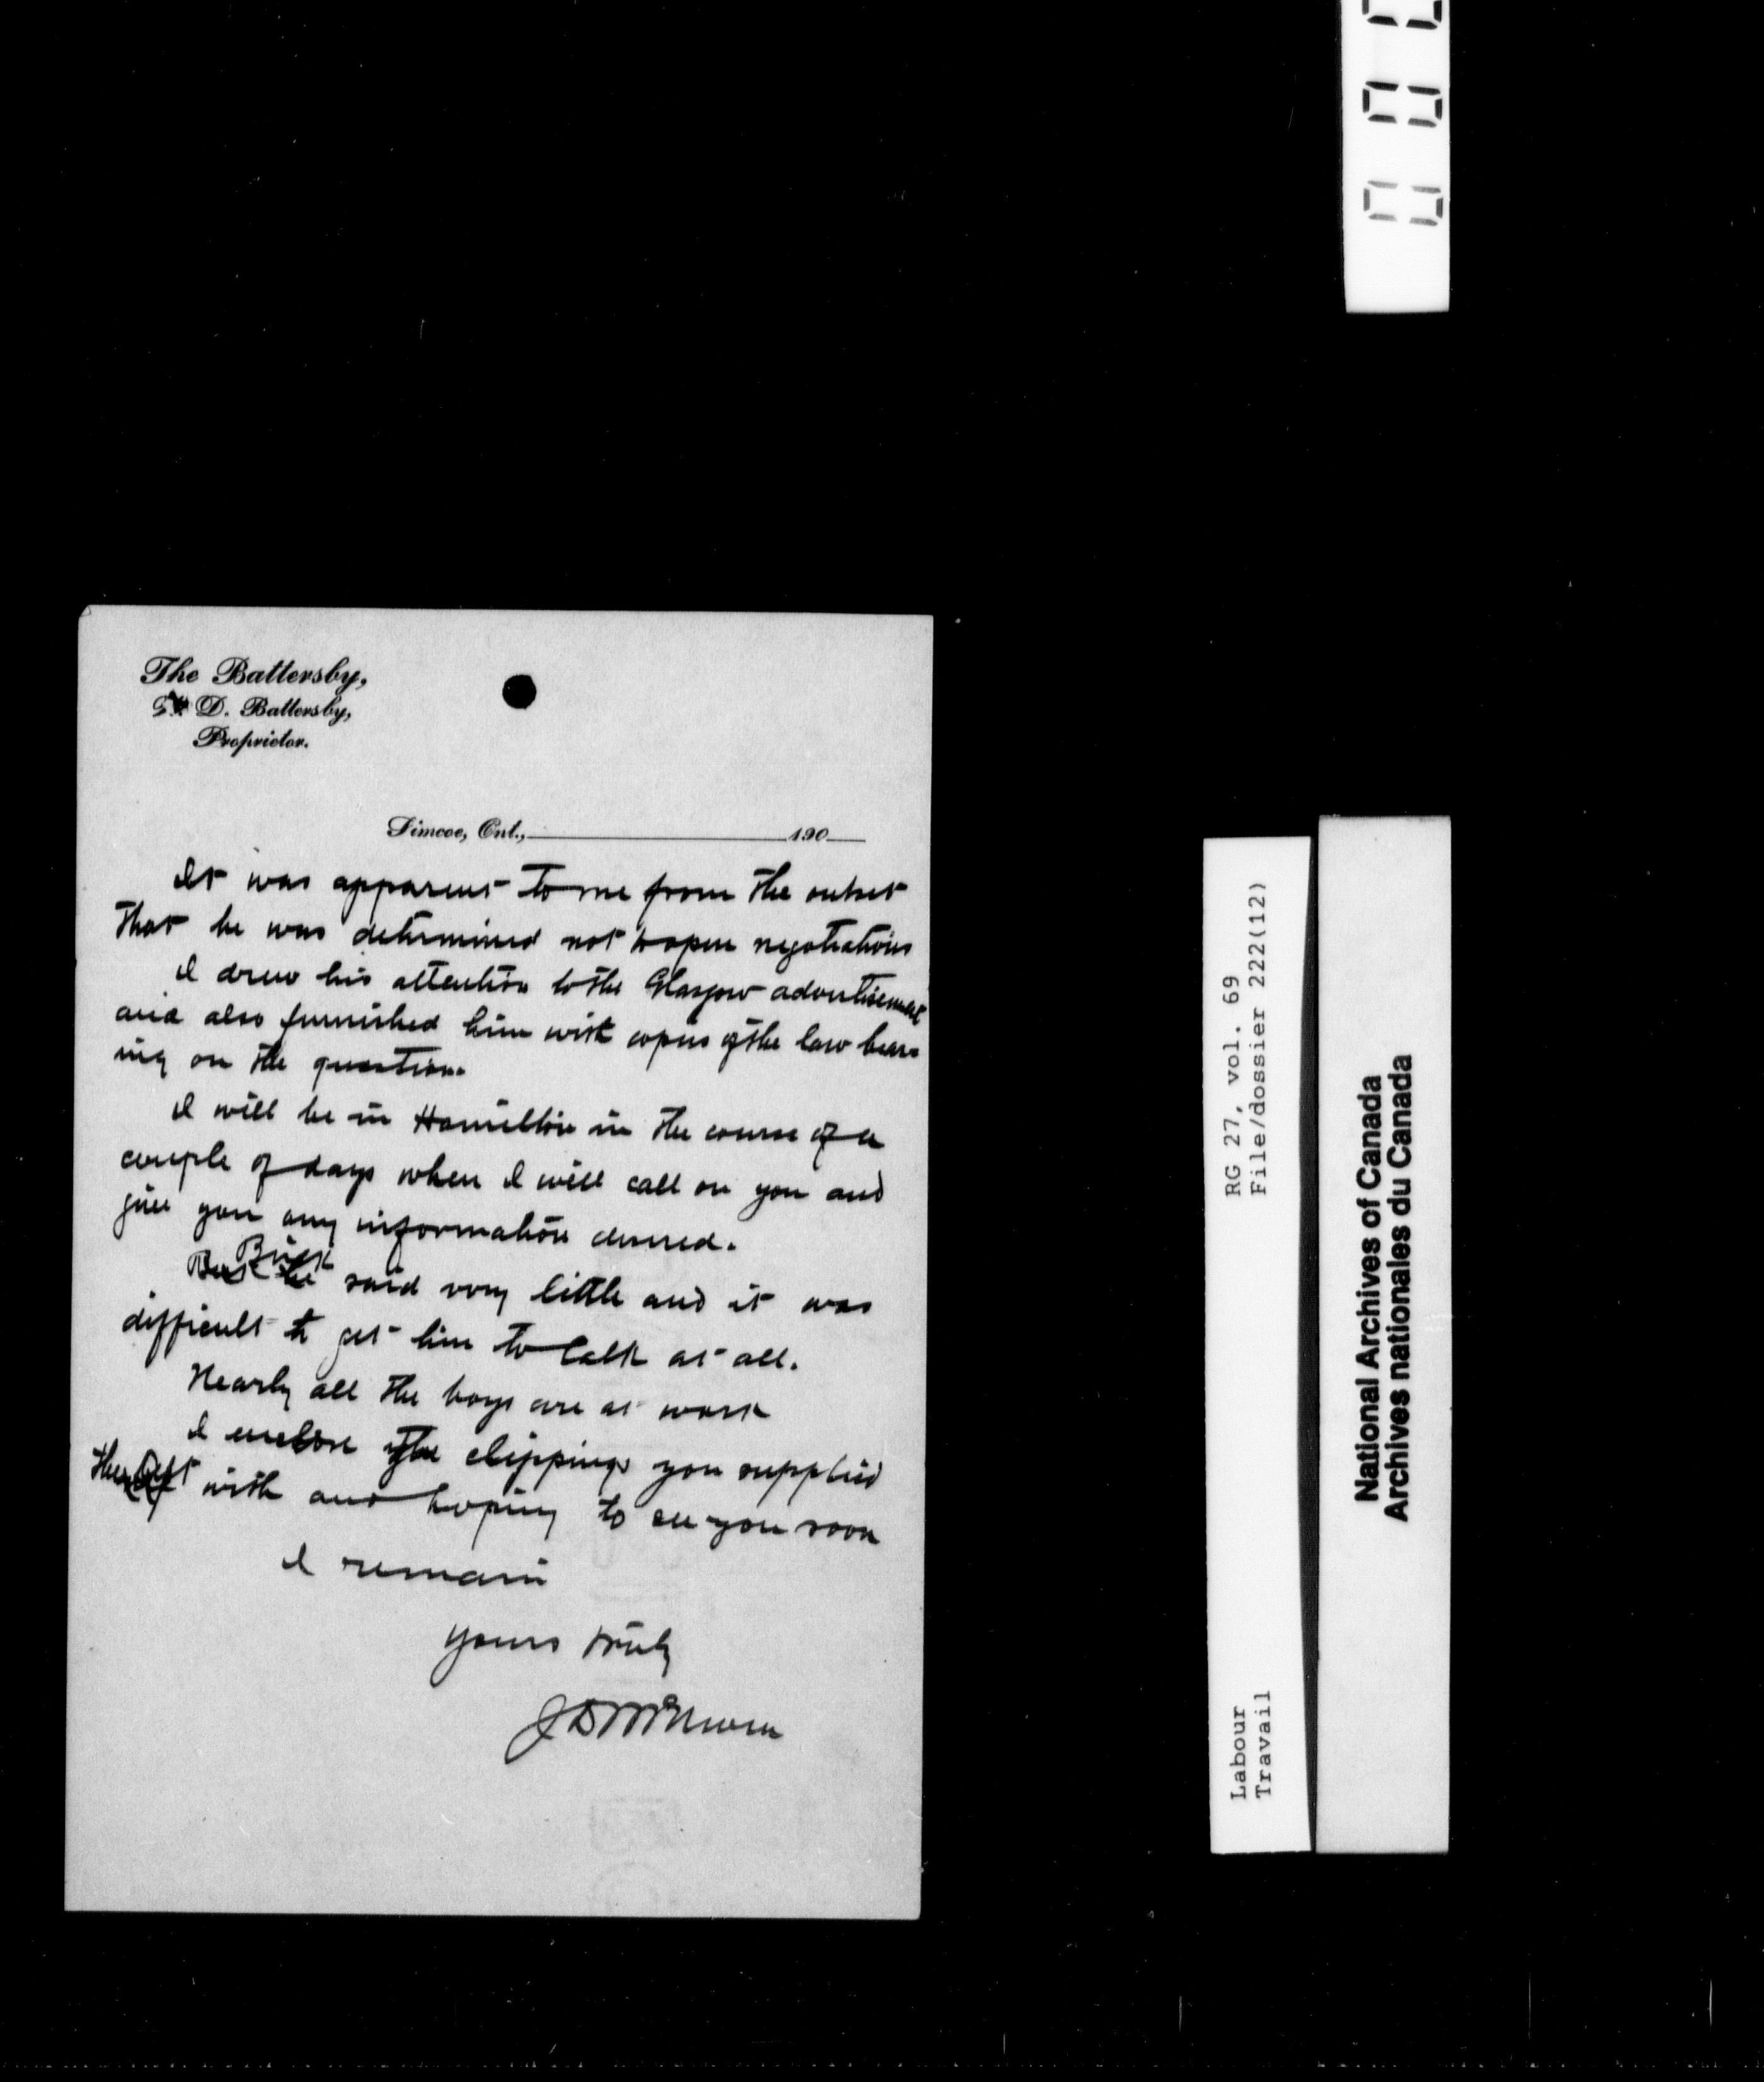 The Battersby,
D. Battersby,
Proprietor.
Simcoe, Ont., 190
It was apparent to me from the outset
that he was determined not to open negotiations
I drew his attention to the Glasgow advertisement
and also furnished him with copies of the law bear
ing on the question.
I will be in Hamilton in the course of a
couple of days when I will call on you and
give you any information desired.
Buck said very little and it was
difficult to get him to talk at all.
Nearly all the boys are at work
I enclose the clippings you supplied
the Dept with and hoping to see you soon
I remain
yours truly
RG 27, vol. 69
File/dossier 222(12)
Labour
Travail
National Archives of Canada
Archives nationales du Canada